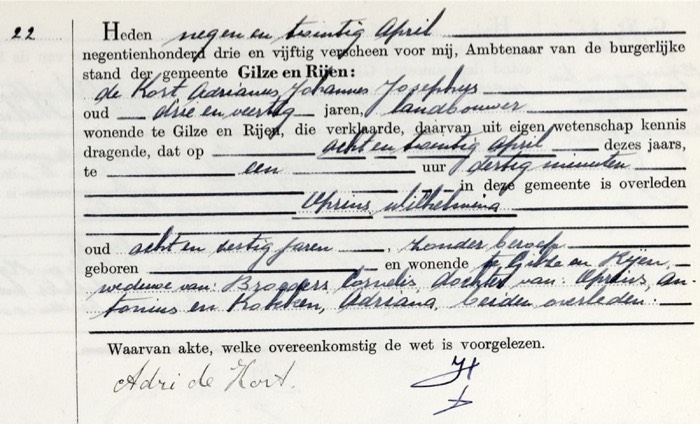 22 Heden negen en twintig April
negentienhonderd drie en vijftig verscheen voor mij, Ambtenaar van de burgerlijke
stand der gemeente Gilze en Rijen:
de Kort Adrianus Johannes Josephus
oud drie en veertig jaren, landbouwer
wonende te Gilze en Rijen, die verklaarde, daarvan uit eigen wetenschap kennis
dragende, dat op acht en twintig April dezes jaars,
te een uur dertig minuten
in deze gemeente is overleden
Oprins, Wilhelmina
oud acht en zestig jaren, zonder beroep
geboren en wonende te Gilze en Rijen,
weduwe van: Broeders, Cornelis, dochter van: Oprins, An-
tonius en Kokeken, Adriana, beiden overleden.
Waarvan akte, welke overeenkomstig de wet is voorgelezen.
Adri de Kort.